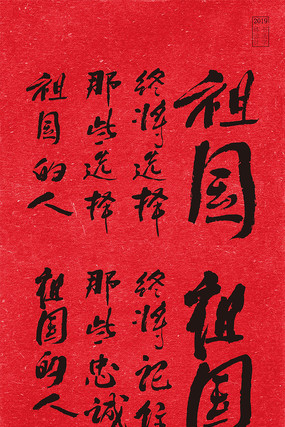 2019
祖国
终将选择
那些选择
祖国的人
祖国
终将记住
那些忠诚
祖国的人